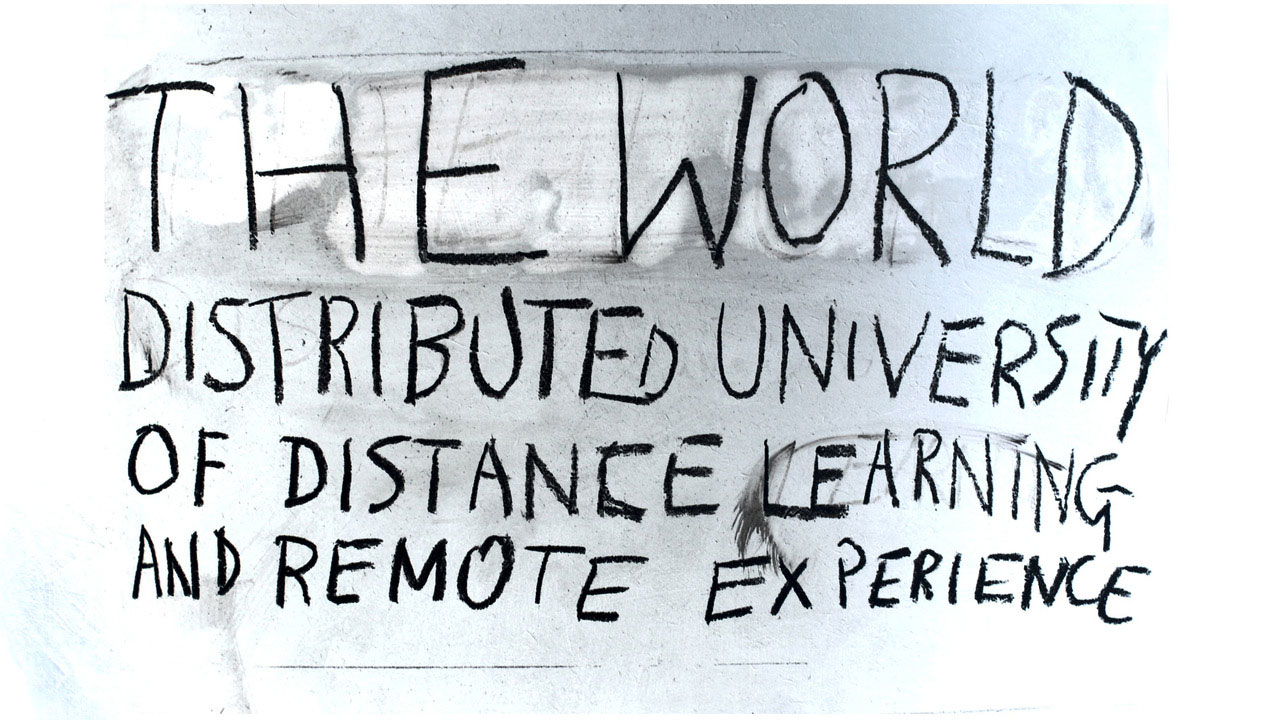 THE WORLD
DISTRIBUTED UNIVERSITY
OF DISTANCE LEARNING
AND REMOTE EXPERIENCE